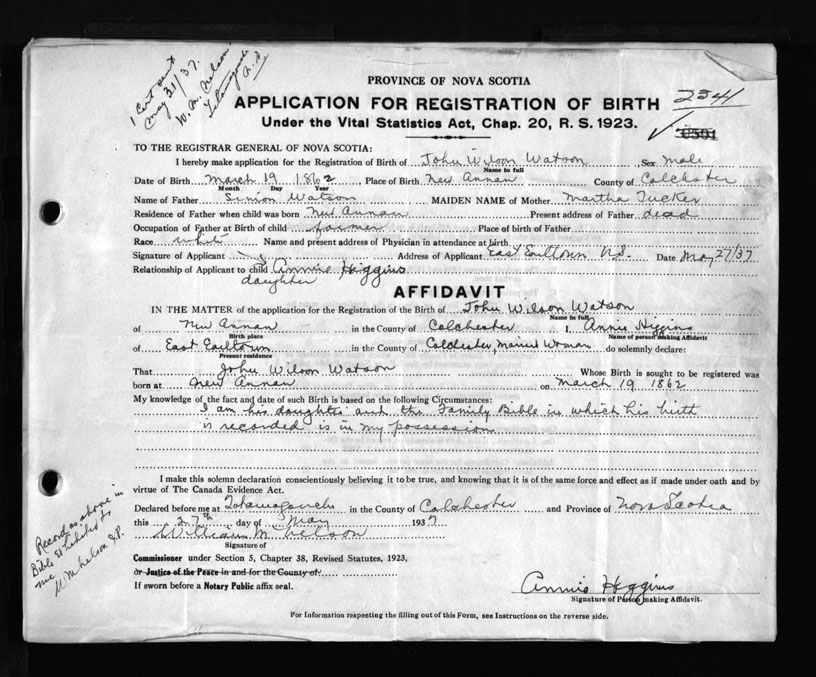 1 Cert sent
May 31/37.
W. M. Nelson
Tatamagouche
N.S.
PROVINCE OF NOVA SCOTIA
APPLICATION FOR REGISTRATION OF BIRTH 2341
Under the Vital Statistics Act, Chap. 20, R. S. 1923.
TO THE REGISTRAR GENERAL OF NOVA SCOTIA:
I hereby make application for the Registration of Birth of John Wilson Watson Sex male
Name in full
Date of Birth March 19 1862 Place of Birth New Annan County of Colchester
Month Day Year
Name of Father Simon Watson MAIDEN NAME of Mother Martha Tucker
Residence of Father when child was born New Annan Present address of Father dead
Occupation of Father at Birth of child farmer Place of birth of Father
Race white Name and present address of Physician in attendance at birth
Signature of Applicant Address of Applicant East Earltown N.S. Date May 27/37
Relationship of Applicant to child Annie Higgins
daughter
AFFIDAVIT
IN THE MATTER of the application for the Registration of the Birth of John Wilson Watson
Name in full
of New Annan in the County of Colchester I, Annie Higgins
Birth place Name of person making Affidavit
of East Earltown in the County of Colchester, Married Woman do solemnly declare:
Present residence
That John Wilson Watson Whose Birth is sought to be registered was
born at New Annan on March 19 1862
My knowledge of the fact and date of such Birth is based on the following Circumstances:
I am his daughter and the Family Bible in which his birth
is recorded is in my possession
I make this solemn declaration conscientiously believing it to be true, and knowing that it is of the same force and effect as if made under oath and by
virtue of The Canada Evidence Act.
Declared before me at Tatamagouche in the County of Colchester and Province of Nova Scotia
this 27th day of May 1937
William M Nelson
Signature of
Commissioner under Section 5, Chapter 38, Revised Statutes, 1923,
or Justice of the Peace in and for the County of
If sworn before a Notary Public affix seal.
Annie Higgins
Signature of Person making Affidavit.
For Information respecting the filling out of this Form, see Instructions on the reverse side.
Record as above in
Bible exhibited to
me
W M Nelson J.P.